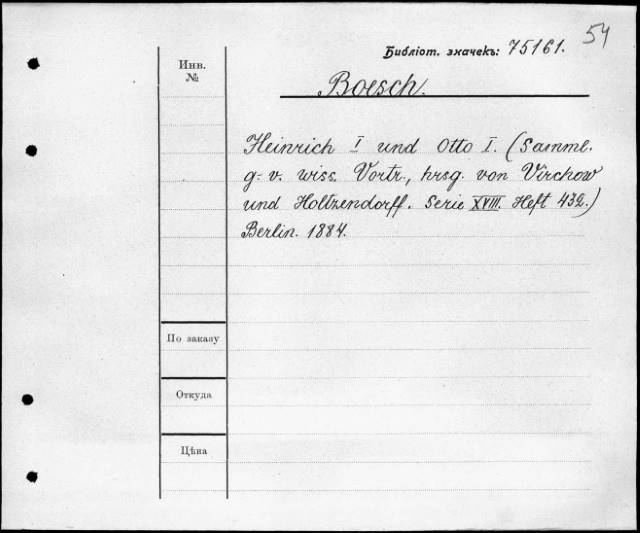 54
Библіот. значекъ: 75161.
Инв.
№
Boesch.
Heinrich I und Otto I. (Samml.
g. v. wiss. Vortr., hrsg. von Virchow
und Holtzendorff. Serie XVIII. Heft 432.)
Berlin. 1884.
По заказу
Откуда
Цѣна